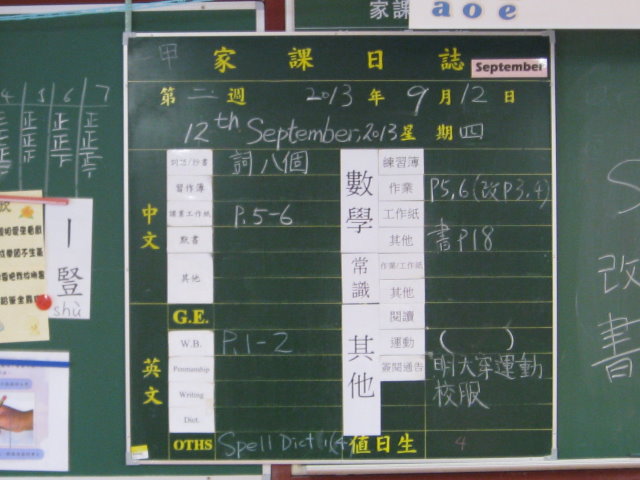 家課
a o e
一甲 家課日誌 September
第二週 2013年9月12日
12th September, 2013 星期四
4 5 6 7
正 正 正 正
中文
詞語/抄書 詞八個
習作簿
課業工作紙 P.5-6
默書
其他
G.E.
英文
W.B. P.1-2
Penmanship
Writing
Dict.
OTHS Spell Dict 1
數學
練習簿
作業 P5,6(改P3,4)
工作紙
其他 書P18
常識
作業/工作紙
其他
其他
閱讀
運動 ( )
簽閱通告 明天穿運動
校服
值日生 4
丨豎
shù
改
書